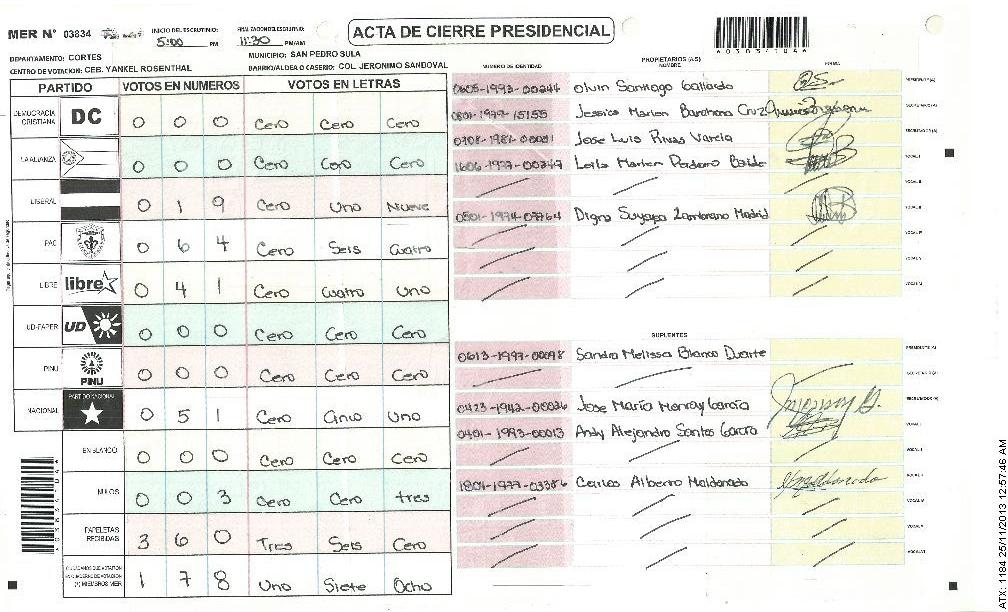 MER N° 03834
INICIO DEL ESCRUTINIO: 5:00 PM
FINALIZACION DEL ESCRUTINIO: 11:30 PM/AM
ACTA DE CIERRE PRESIDENCIAL
DEPARTAMENTO: CORTES
MUNICIPIO: SAN PEDRO SULA
CENTRO DE VOTACION: CEB. YANKEL ROSENTHAL
BARRIO/ALDEA O CASERIO: COL JERONIMO SANDOVAL
PARTIDO VOTOS EN NUMEROS VOTOS EN LETRAS
DEMOCRACIA CRISTIANA DC 0 0 0 Cero Cero Cero
LA ALIANZA 0 0 0 Cero Cero Cero
LIBERAL 0 1 9 Cero Uno Nueve
PAC 0 6 4 Cero Seis Cuatro
LIBRE libre 0 4 1 Cero Cuatro Uno
UD-FAPER UD 0 0 0 Cero Cero Cero
PINU PINU 0 0 0 Cero Cero Cero
NACIONAL PARTIDO NACIONAL 0 5 1 Cero Cinco Uno
EN BLANCO 0 0 0 Cero Cero Cero
NULOS 0 0 3 Cero Cero tres
PAPELETAS RECIBIDAS 3 6 0 Tres Seis Cero
CIUDADANOS QUE VOTARON EN CUADERNO DE VOTACION (+) MIEMBROS MER 1 7 8 Uno Siete Ocho
PROPIETARIOS (AS)
NUMERO DE IDENTIDAD NOMBRE FIRMA
0605-1993-00244 Olvin Santiago Gallardo PRESIDENTE(A)
0801-1979-15155 Jessica Marien Barahona Cruz SECRETARIO(A)
0708-1981-00081 Jose Luis Rivas Varela ESCRUTADOR(A)
Leila Marlen Perdomo VOCAL I
VOCAL II
0501-1974-07764 Digna Suyapa Zambrano Madrid VOCAL III
VOCAL IV
VOCAL V
VOCAL VI
SUPLENTES
0613-1997-00098 Sandra Melissa Blanco Duarte PRESIDENTE(A)
SECRETARIO(A)
0423-1942-00026 Jose María Monroy García ESCRUTADOR(A)
0401-1993-00013 Andy Alejandro Santos García VOCAL I
VOCAL II
1801-1977-03386 Carlos Alberto Maldonado VOCAL III
VOCAL IV
VOCAL V
VOCAL VI
ATX: 1184 25/11/2013 12:57:46 AM